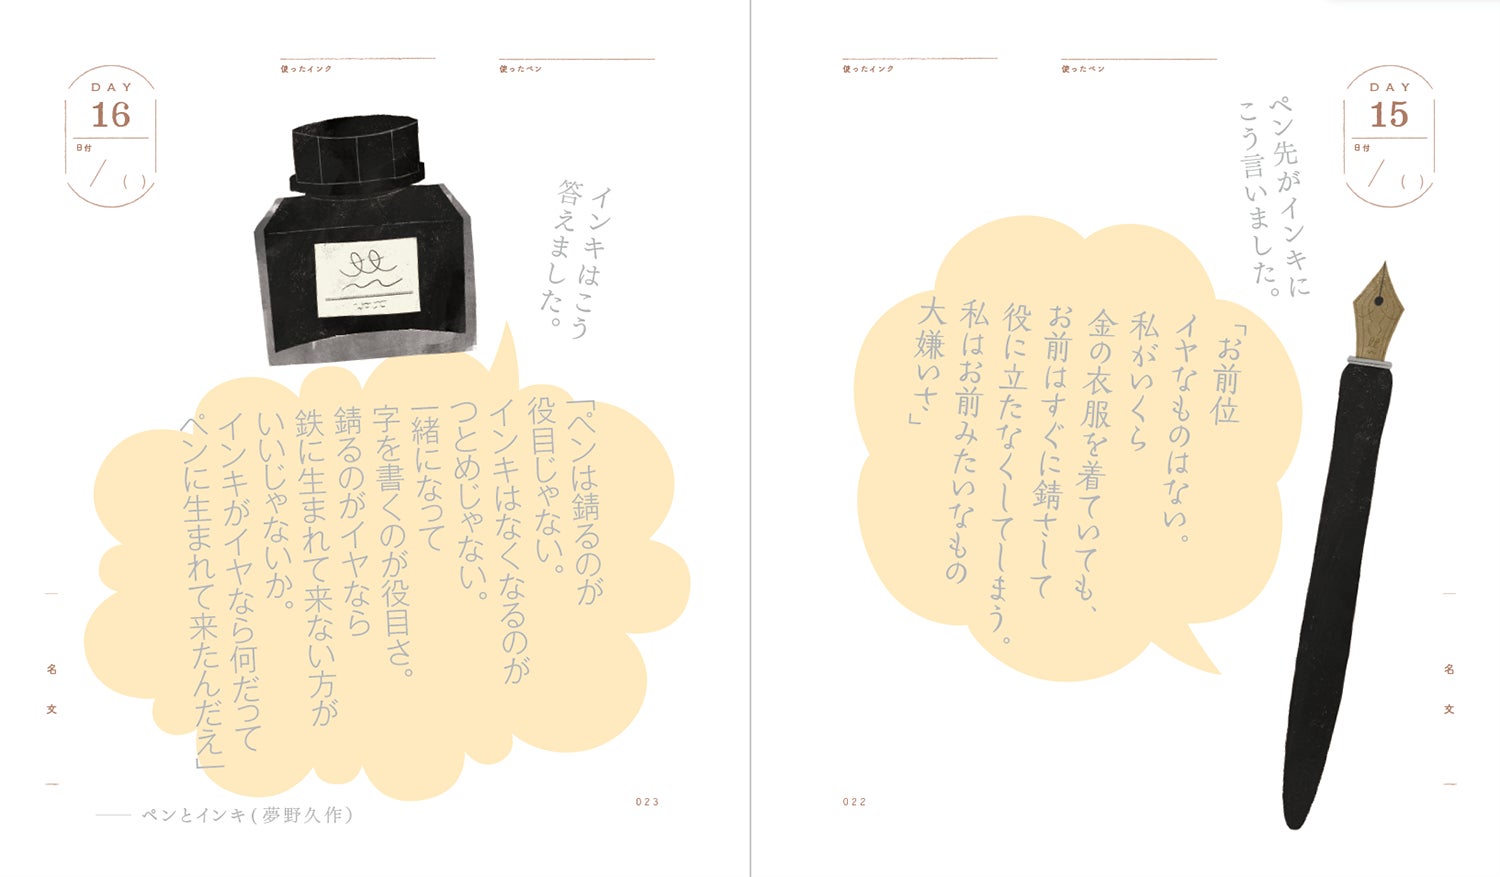 DAY
15
日付
/ ( )
使ったペン
使ったインク
ペン先がインキに
こう言いました。
「お前位
イヤなものはない。
私がいくら
金の衣服を着ていても、
お前はすぐに錆さして
役に立たなくしてしまう。
私はお前みたいなもの
大嫌いさ」
名文
022
DAY
16
日付
/ ( )
使ったペン
使ったインク
インキはこう
答えました。
「ペンは錆るのが
役目じゃない。
インキはなくなるのが
つとめじゃない。
一緒になって
字を書くのが役目さ。
錆るのがイヤなら
鉄に生まれて来ない方が
いいじゃないか。
インキがイヤなら何だって
ペンに生まれて来たんだえ」
── ペンとインキ(夢野久作)
名文
023